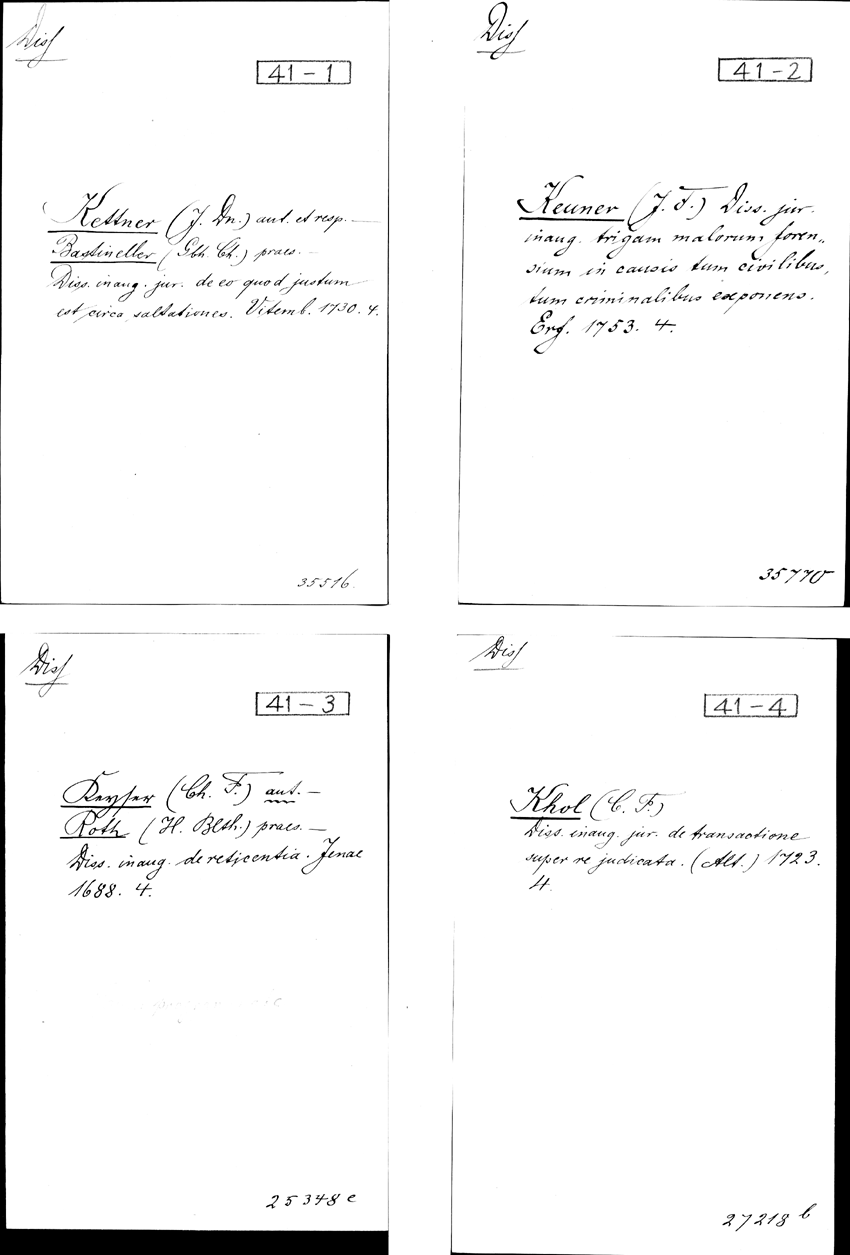 Diss
41 - 1
Kettner (J. Dn.) aut. et resp. —
Bastineller (Gbh. Ch.) praes. —
Diss. inaug. jur. de eo quod justum
est circa saltationes. Vitemb. 1730. 4.
35516.
Diss
41 - 2
Keuner (J. F.) Diss. jur.
inaug. trigam malorum foren„
sium in causis tum civilibus,
tum criminalibus exponens.
Erf. 1753. 4.
35770
Diss
41 - 3
Keyser (Ch. F.) aut. —
Roth (H. Blth.) praes. —
Diss. inaug. de reticentia. Jenae
1688. 4.
25348 e
Diss
41 - 4
Khol (C. F.)
Diss. inaug. jur. de transactione
super re judicata. (Alt.) 1723.
4.
27218 b